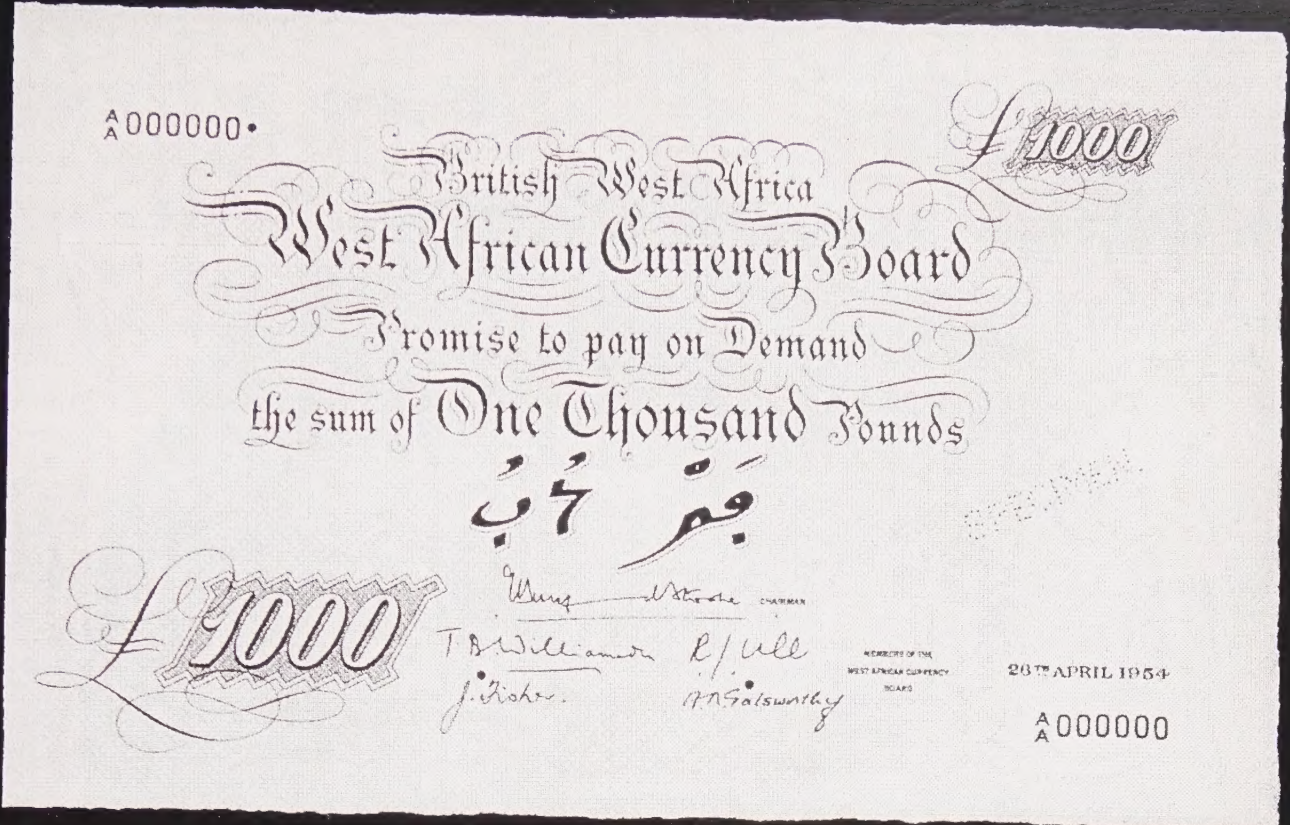 A/A 000000•
£1000
British West Africa
West African Currency Board
Promise to pay on Demand
the sum of One Thousand Pounds
ڢَمْ دُبُ
SPECIMEN
CHAIRMAN
£1000
T B Williamson
J. Fisher.
Galsworthy
MEMBERS OF THE
WEST AFRICAN CURRENCY
BOARD
26TH APRIL 1954
A/A 000000